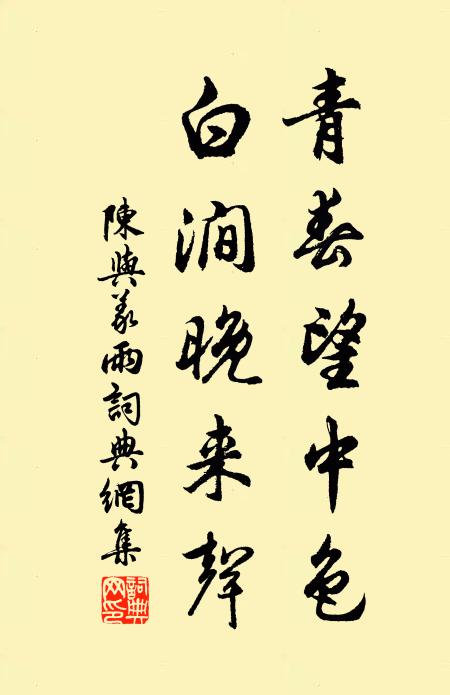 青春望中色
白澗晚来聲
陳與義雨詞典網集
詞典网印